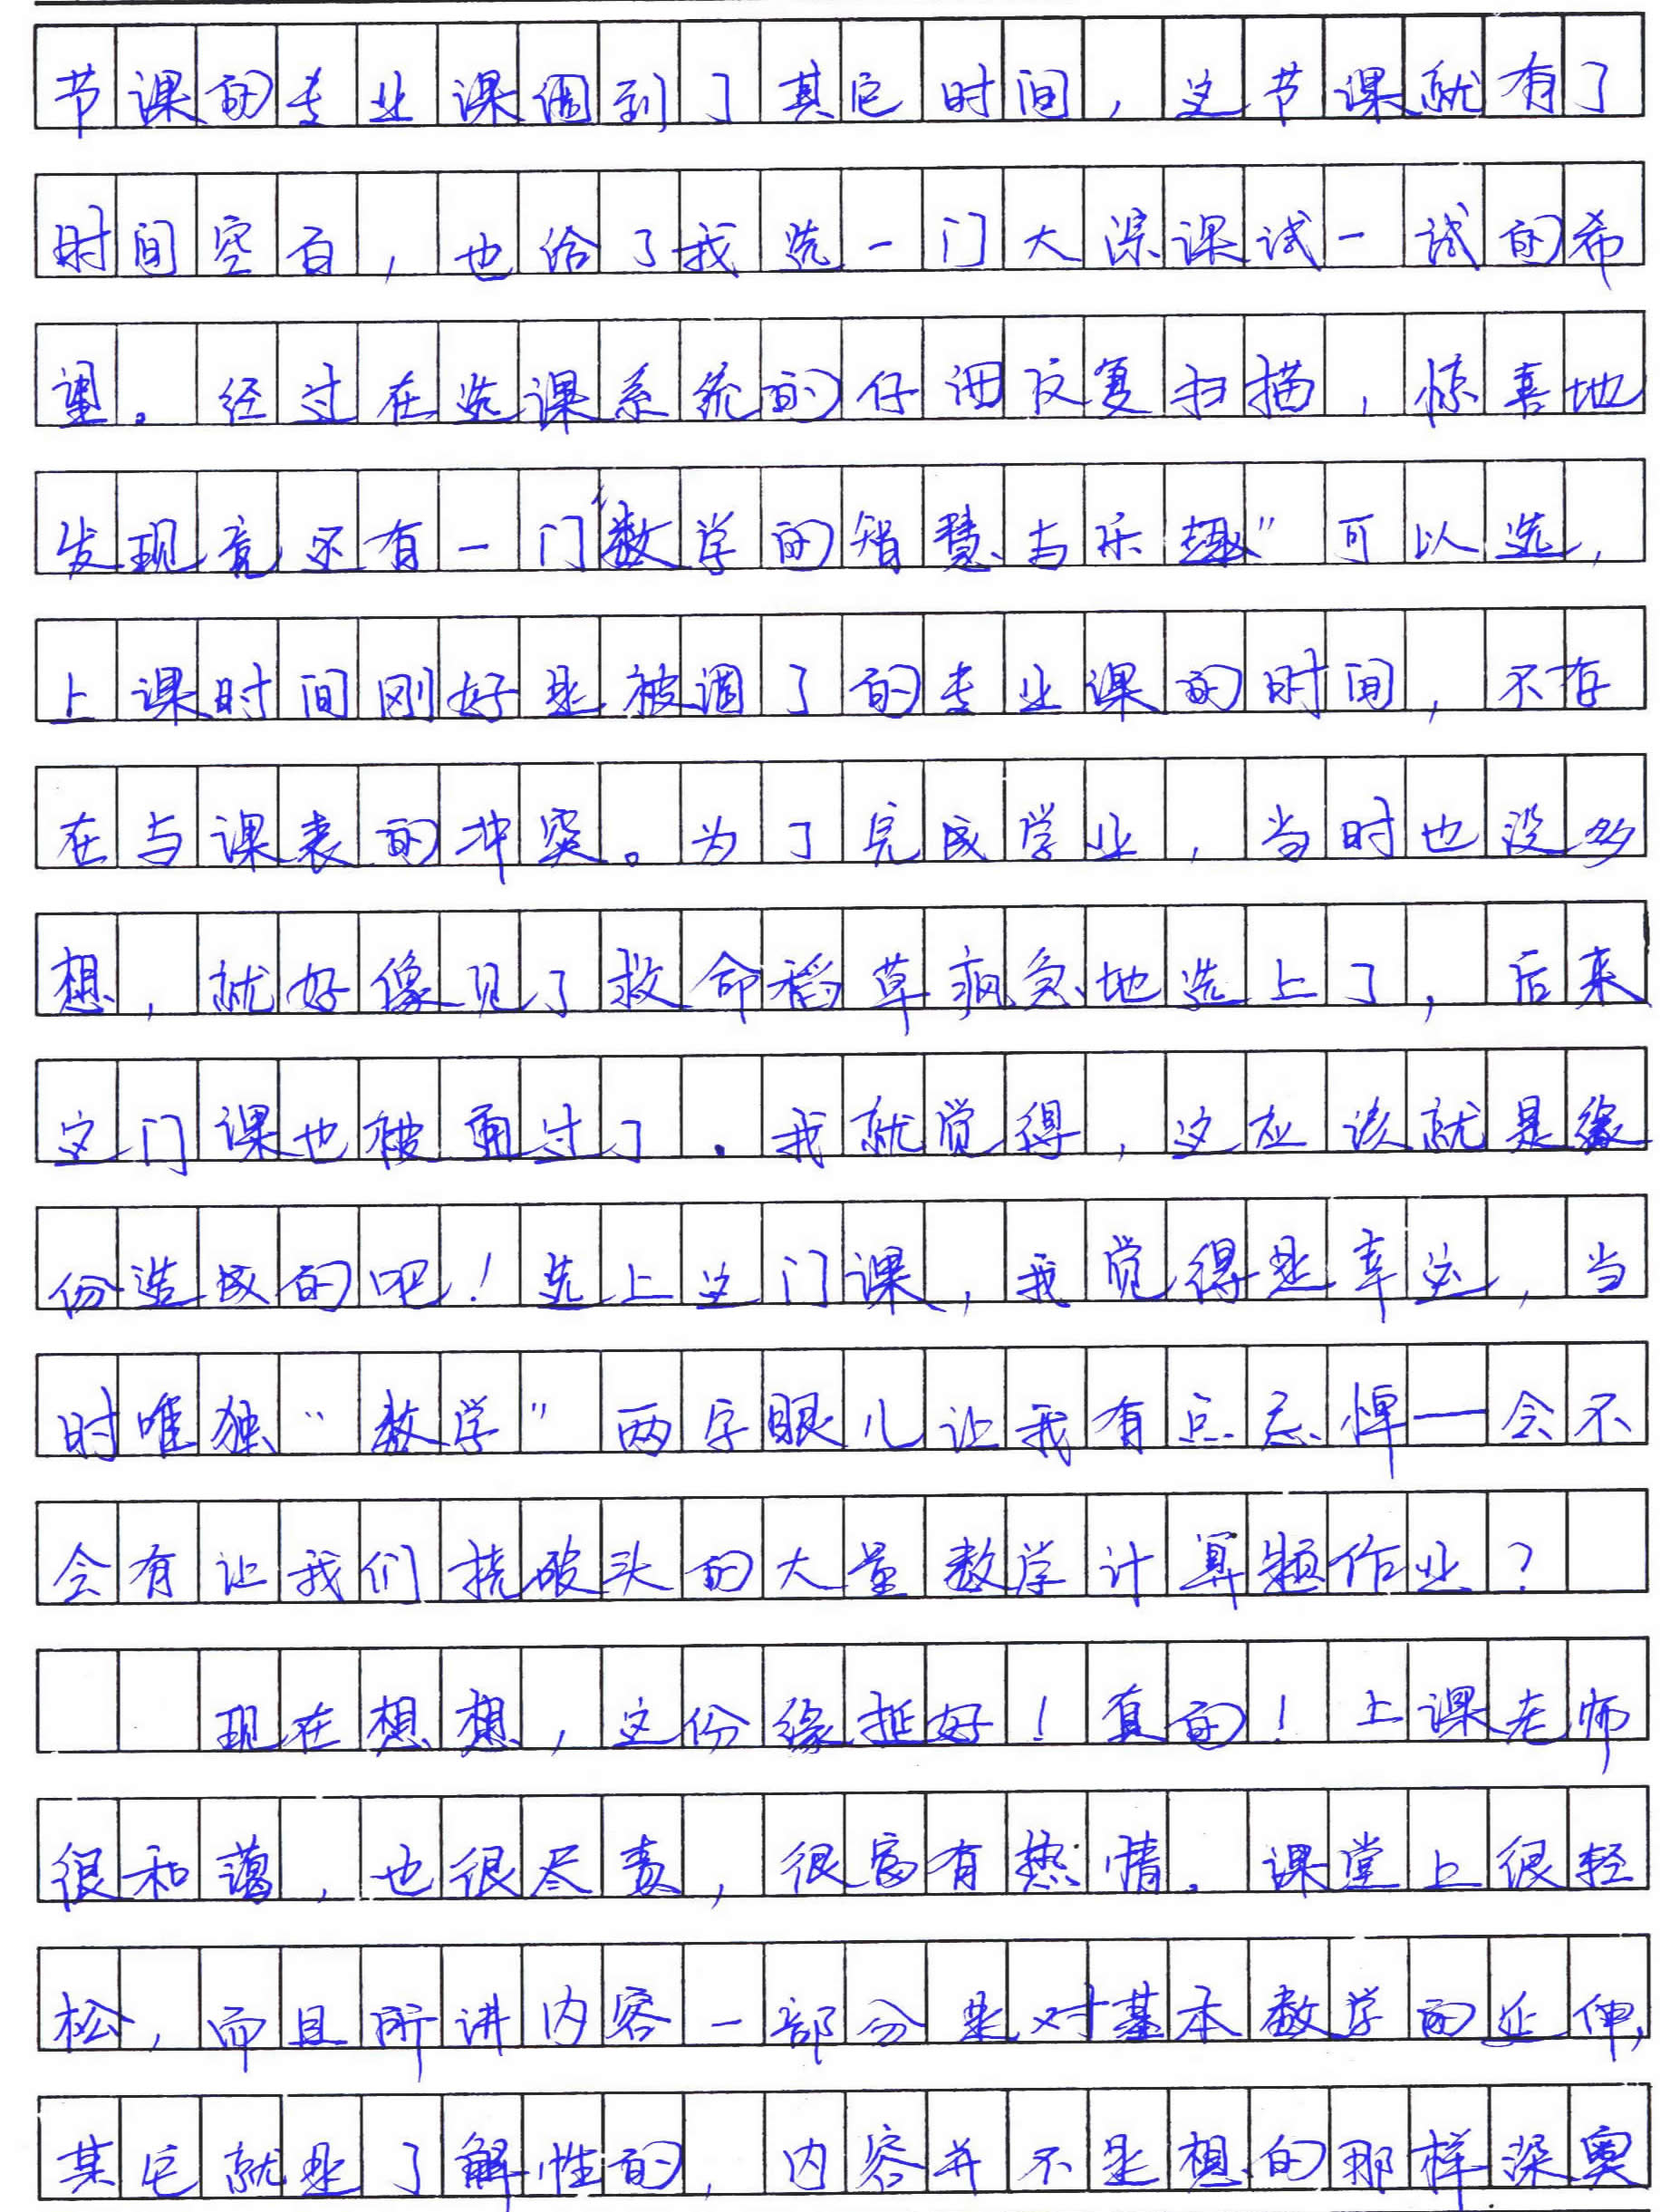 节课的专业课调到了其它时间，这节课就有了
时间空白，也给了我选一门大课课试一试的希
望。经过在选课系统的仔细反复扫描，惊喜地
发现竟还有一门“数学的智慧与乐趣”可以选，
上课时间刚好是被调了的专业课的时间，不存
在与课表的冲突。为了完成学业，当时也没多
想，就好像见了救命稻草疯急地选上了，后来
这门课也被通过了。我就觉得，这应该就是缘
份造成的吧！选上这门课，我觉得是幸运，当
时唯独“数学”两字眼儿让我有点忐悼——会不
会有让我们挠破头的大量数学计算题作业？
现在想想，这份缘挺好！真的！上课老师
很和蔼，也很尽责，很富有热情。课堂上很轻
松，而且所讲内容一部分是对基本数学的延伸，
其它就是了解性的，内容并不是想的那样深奥